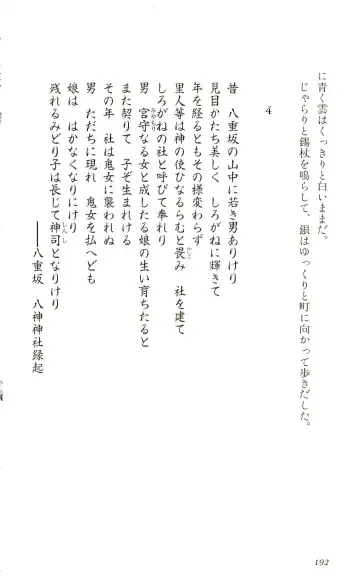 に青く雲はくっきりと白いままだ。
じゃらりと錫杖を鳴らして、銀はゆっくりと町に向かって歩きだした。
4
昔 八重坂の山中に若き男ありけり
見目かたち美しく しろがねに輝きて
年を経るともその様変わらず
里人等は神の使ひなるらむと畏み 社を建て
しろがねの社と呼びて奉れり
男 宮守なる女と成したる娘の生い育ちたると
また契りて 子ぞ生まれける
その年 社は鬼女に襲われぬ
男 ただちに現れ 鬼女を払へども
娘は はかなくなりにけり
残れるみどり子は長じて神司となりけり
――八重坂 八神神社縁起
192